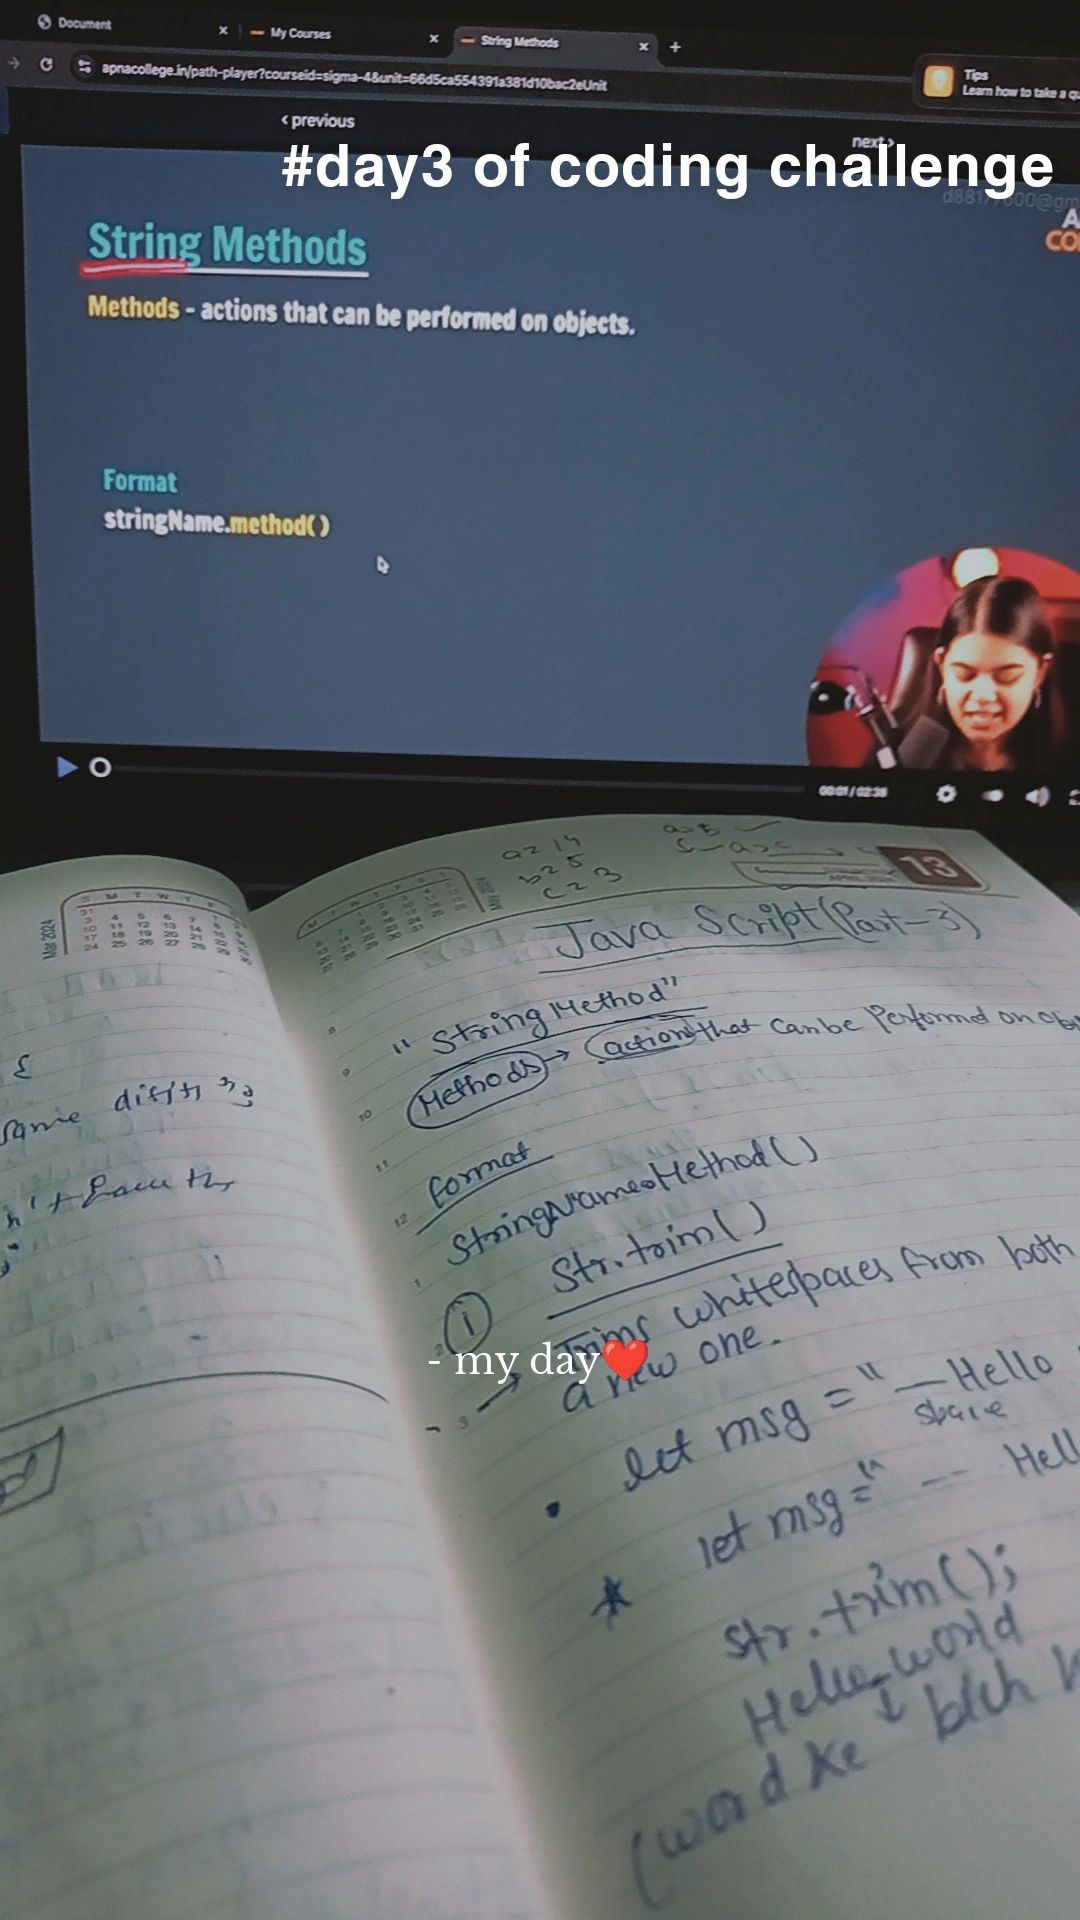 Document
My Courses
String Methods
apnacollege.in/path-player?courseid=sigma-4&unit=66d5ca554391a381d10bac2eUnit
Tips
Learn how to take a
‹ previous
next ›
#day3 of coding challenge
String Methods
Methods - actions that can be performed on objects.
Format
stringName.method( )
00:01 / 02:38
a = 14
b = 5
c = 3
13
Mar 2024
Java Script (Part-3)
"String Method"
Methods → action that can be Performed on
format
StringName.Method()
① Str.trim()
→ Trims whitespaces from both
a new one.
- my day❤️
let msg = " — Hello
space
let msg = " -- Hell
str.trim();
Hello world
(word ke ↓ bich
same